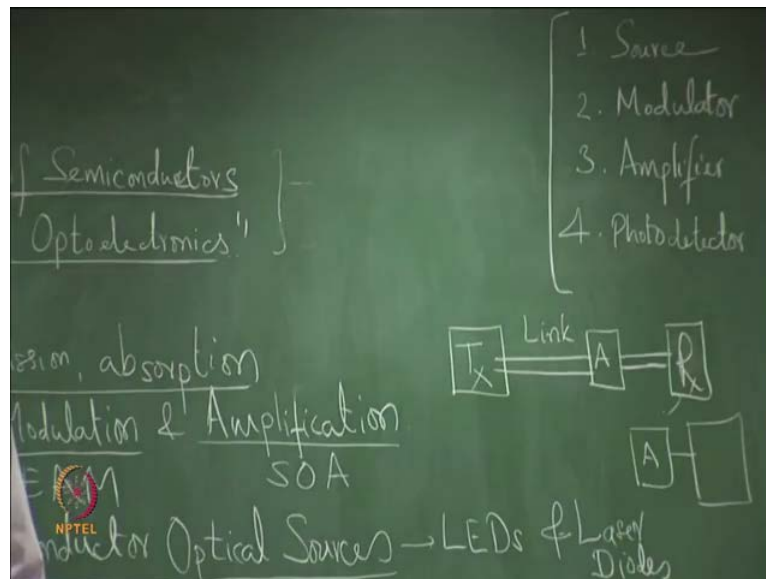 1. Source
2. Modulator
3. Amplifier
4. Photodetector
f Semiconductors
Optoelectronics"
Tx Link A Rx
A
ssion, absorption
Modulation & Amplification
EAM SOA
nductor Optical Sources → LEDs & Laser
Diodes
NPTEL